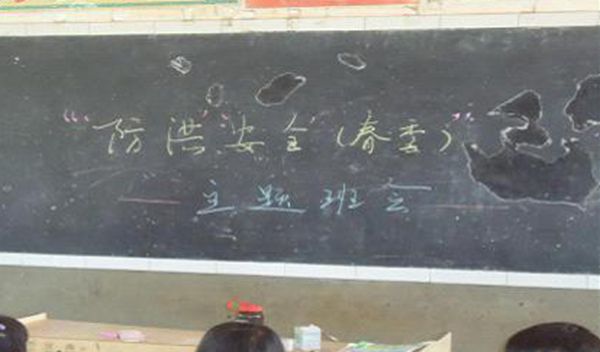 “防洪安全（春季）”
主题班会